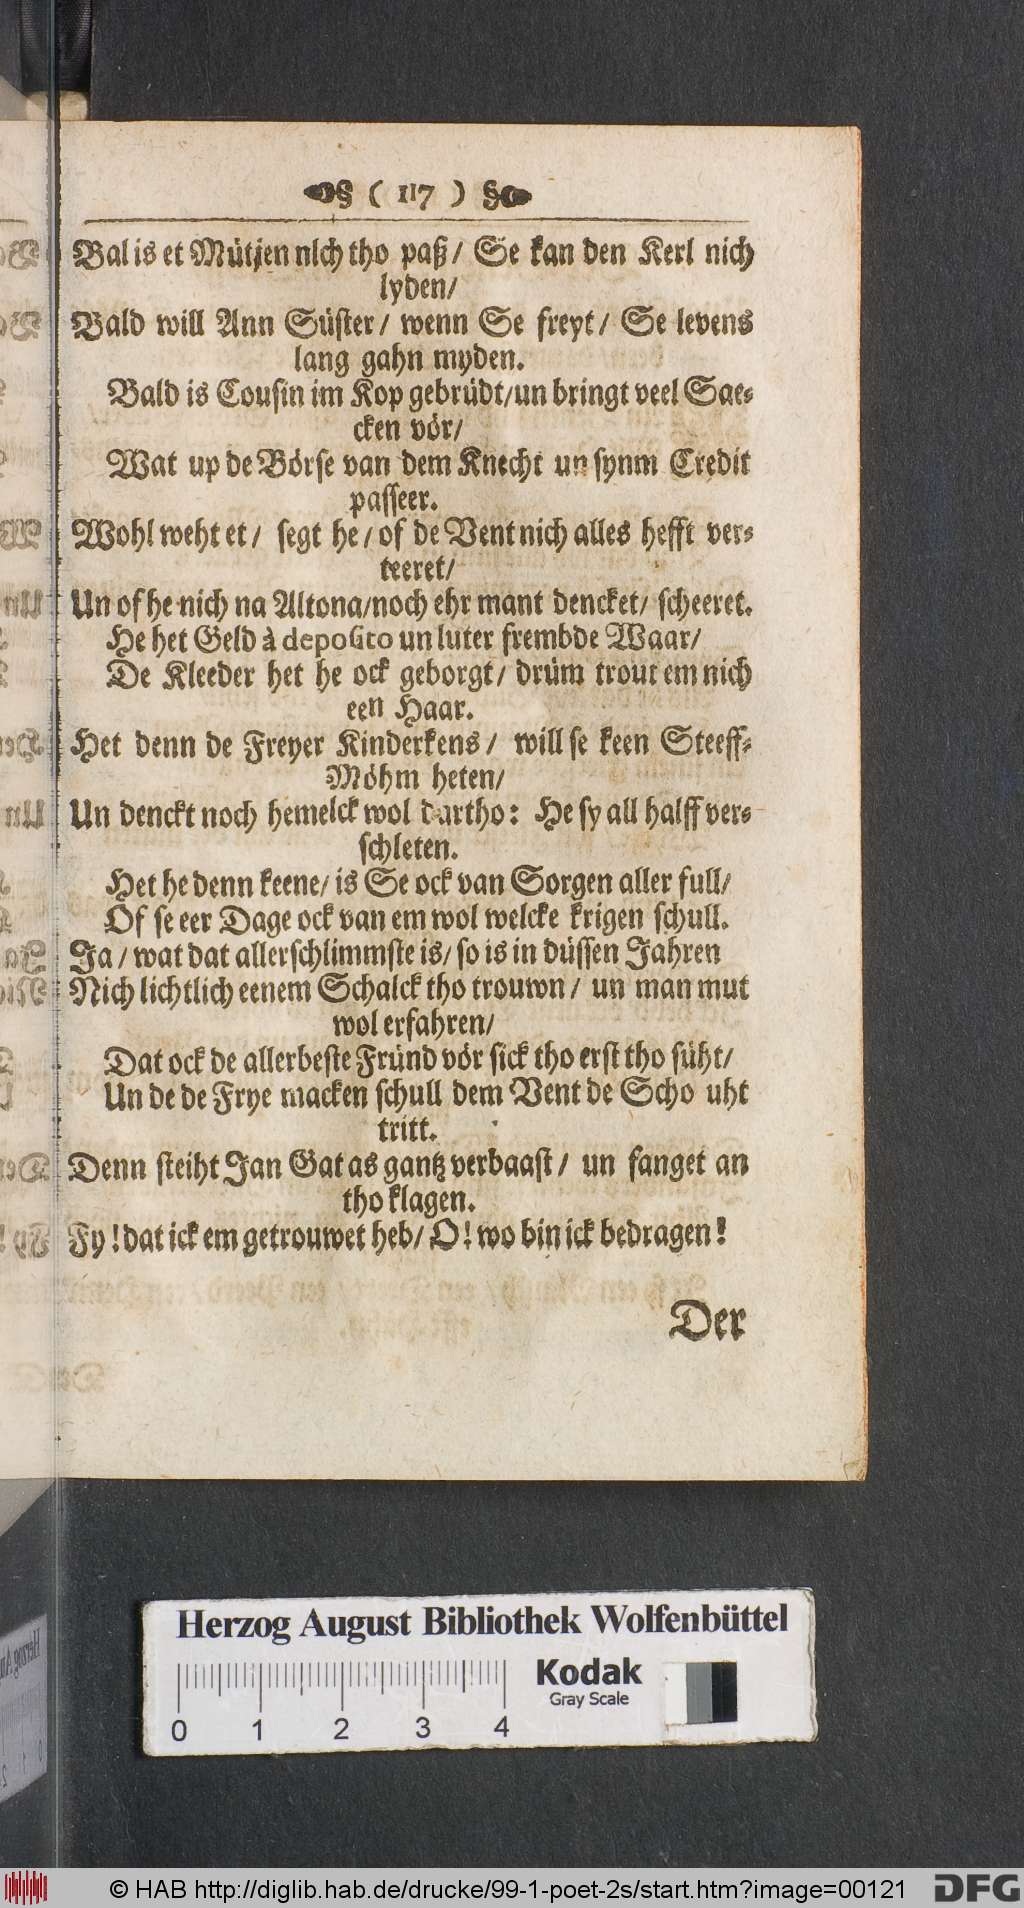 ( 117 )
Bal is et Mütjen nich tho paß/ Se kan den Kerl nich
lyden/
Bald will Ann Süster/ wenn Se freyt/ Se levens
lang gahn myden.
Bald is Cousin im Kop gebrüdt/un bringt veel Sae-
cken vör/
Wat up de Börse van dem Knecht un synm Credit
passeer.
Wohl weht et/ segt he/ of de Vent nich alles hefft ver-
teeret/
Un of he nich na Altona/noch ehr mant dencket/ scheeret.
He het Geld à deposito un luter frembde Waar/
De Kleeder het he ock geborgt/ drüm trout em nich
een Haar.
Het denn de Freyer Kinderkens/ will se keen Steeff-
Möhm heten/
Un denckt noch hemelck wol dartho: He sy all halff ver-
schleten.
Het he denn keene/ is Se ock van Sorgen aller full/
Of se eer Dage ock van em wol welcke krigen schull.
Ja/ wat dat allerschlimmste is/ so is in düssen Jahren
Nich lichtlich eenem Schalck tho trouwn/ un man mut
wol erfahren/
Dat ock de allerbeste Fründ vör sick tho erst tho süht/
Un de de Frye macken schull dem Vent de Scho uht
tritt.
Denn steiht Jan Gat as gantz verbaast/ un fanget an
tho klagen.
Fy! dat ick em getrouwet heb/ O! wo bin ick bedragen!
Der
Herzog August Bibliothek Wolfenbüttel
Kodak
Gray Scale
0 1 2 3 4
© HAB http://diglib.hab.de/drucke/99-1-poet-2s/start.htm?image=00121
DFG